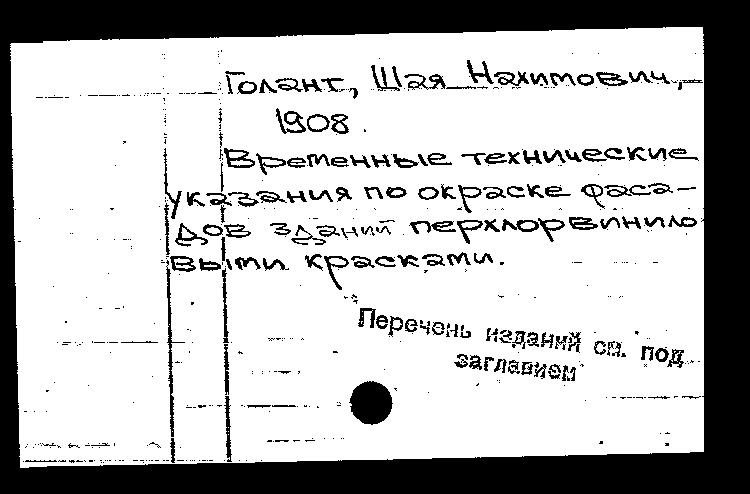 Голант, Шая Нахимович,
1908.
Временные технические
указания по окраске фаса-
дов зданий перхлорвинило
выми красками.
Перечень изданий см. под
заглавием